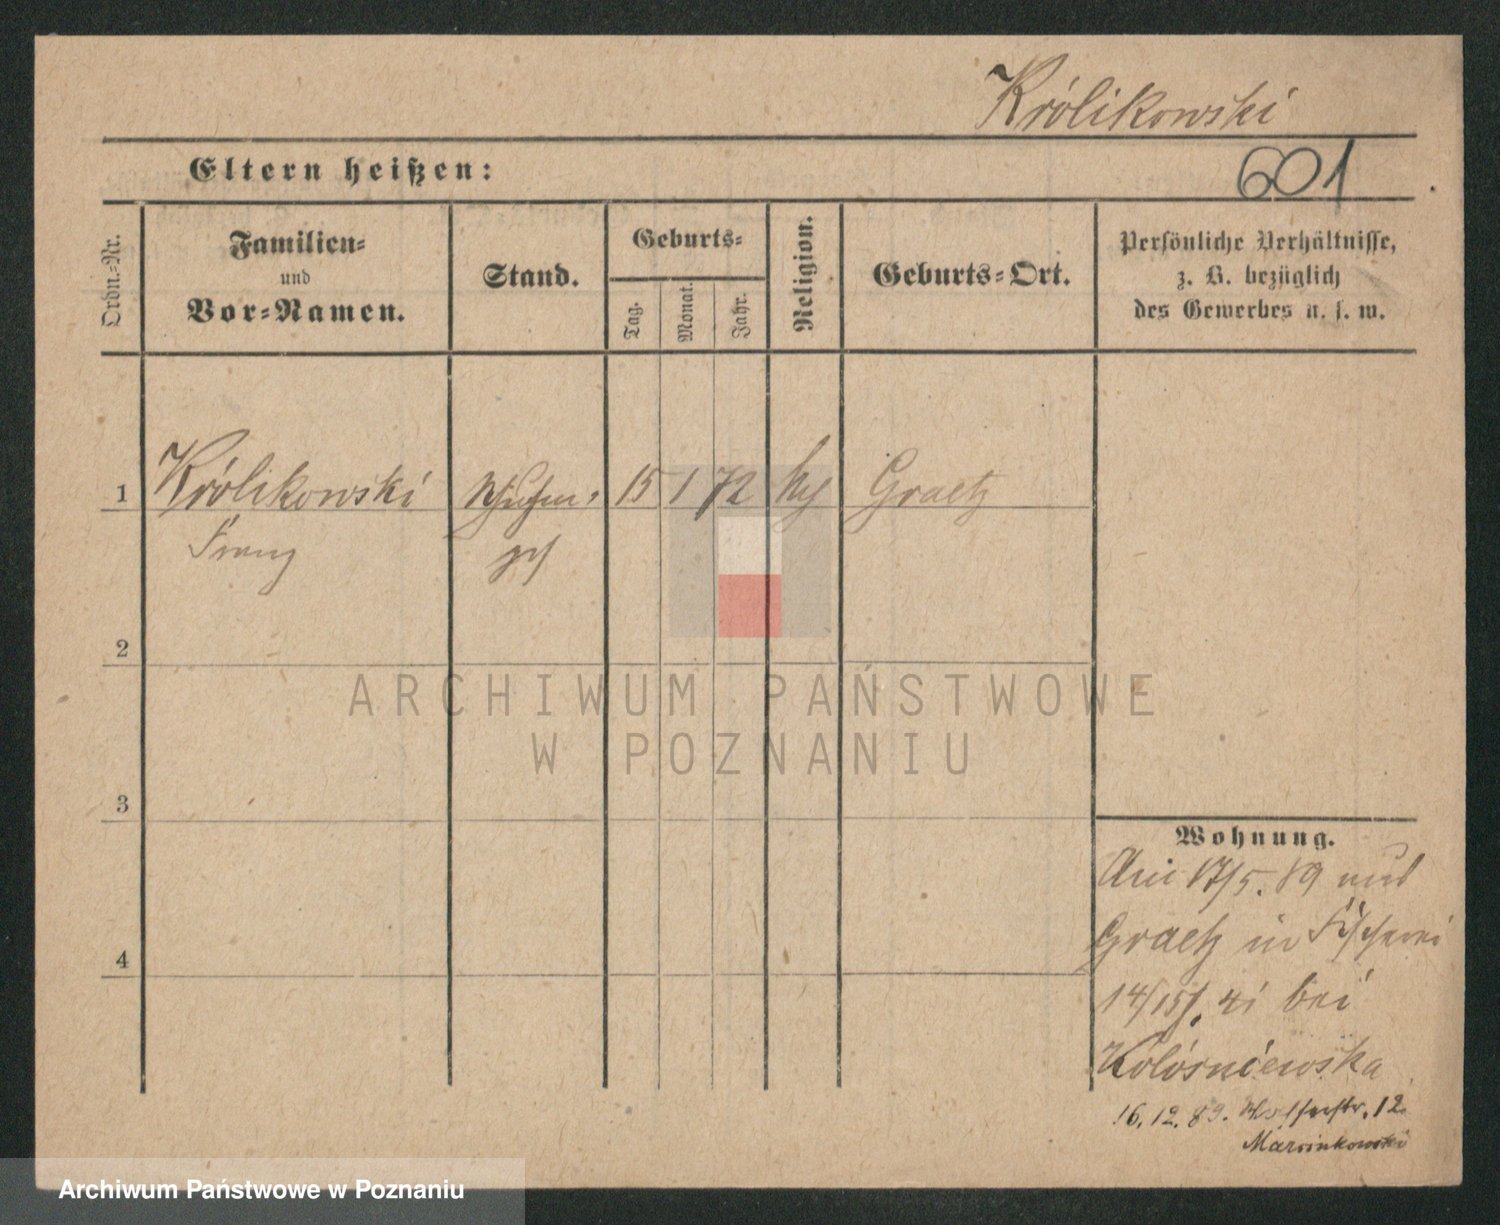 Królikowski
Eltern heißen:
601
Ordn.-Nr.
Familien-
und
Vor-Namen.
Stand.
Geburts-
Tag.
Monat.
Jahr.
Religion.
Geburts-Ort.
Persönliche Verhältnisse,
z. B. bezüglich
des Gewerbes u. s. w.
1 Królikowski 15 1 72 Graetz
Franz
2
3
4
Wohnung.
17/5. 89
Graetz in Fischerei
14/15 bei
16. 12. 89. 12.
Marcinkowski
ARCHIWUM PAŃSTWOWE
W POZNANIU
Archiwum Państwowe w Poznaniu